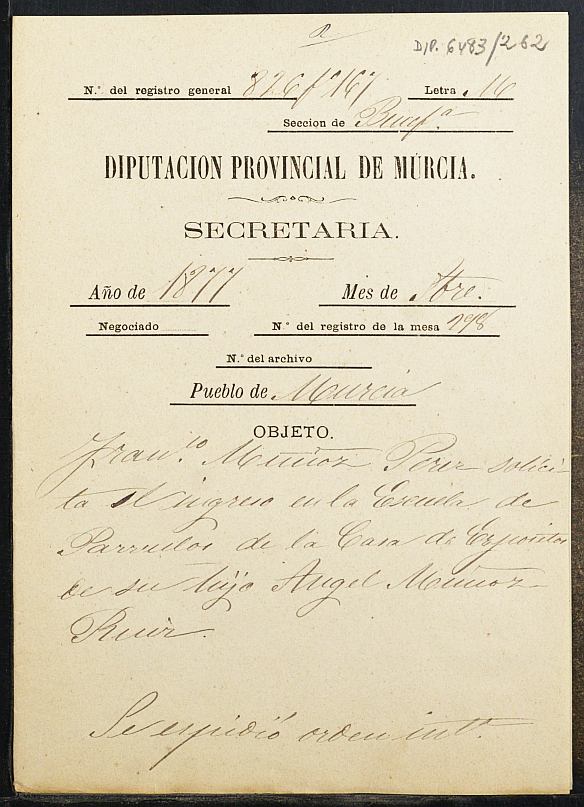 DIP. 6483/262
N.º del registro general 826 fº 167 Letra 16
Seccion de Benefª
DIPUTACION PROVINCIAL DE MURCIA.
SECRETARIA.
Año de 1877 Mes de
Negociado N.º del registro de la mesa 298
N.º del archivo
Pueblo de Murcia
OBJETO.
Franco Muñoz Perez solici-
ta el ingreso en la Escuela de
Parvulos de la Casa de Expositos
de su hijo Angel Muñoz
Ruiz.
Se espidió orden intª